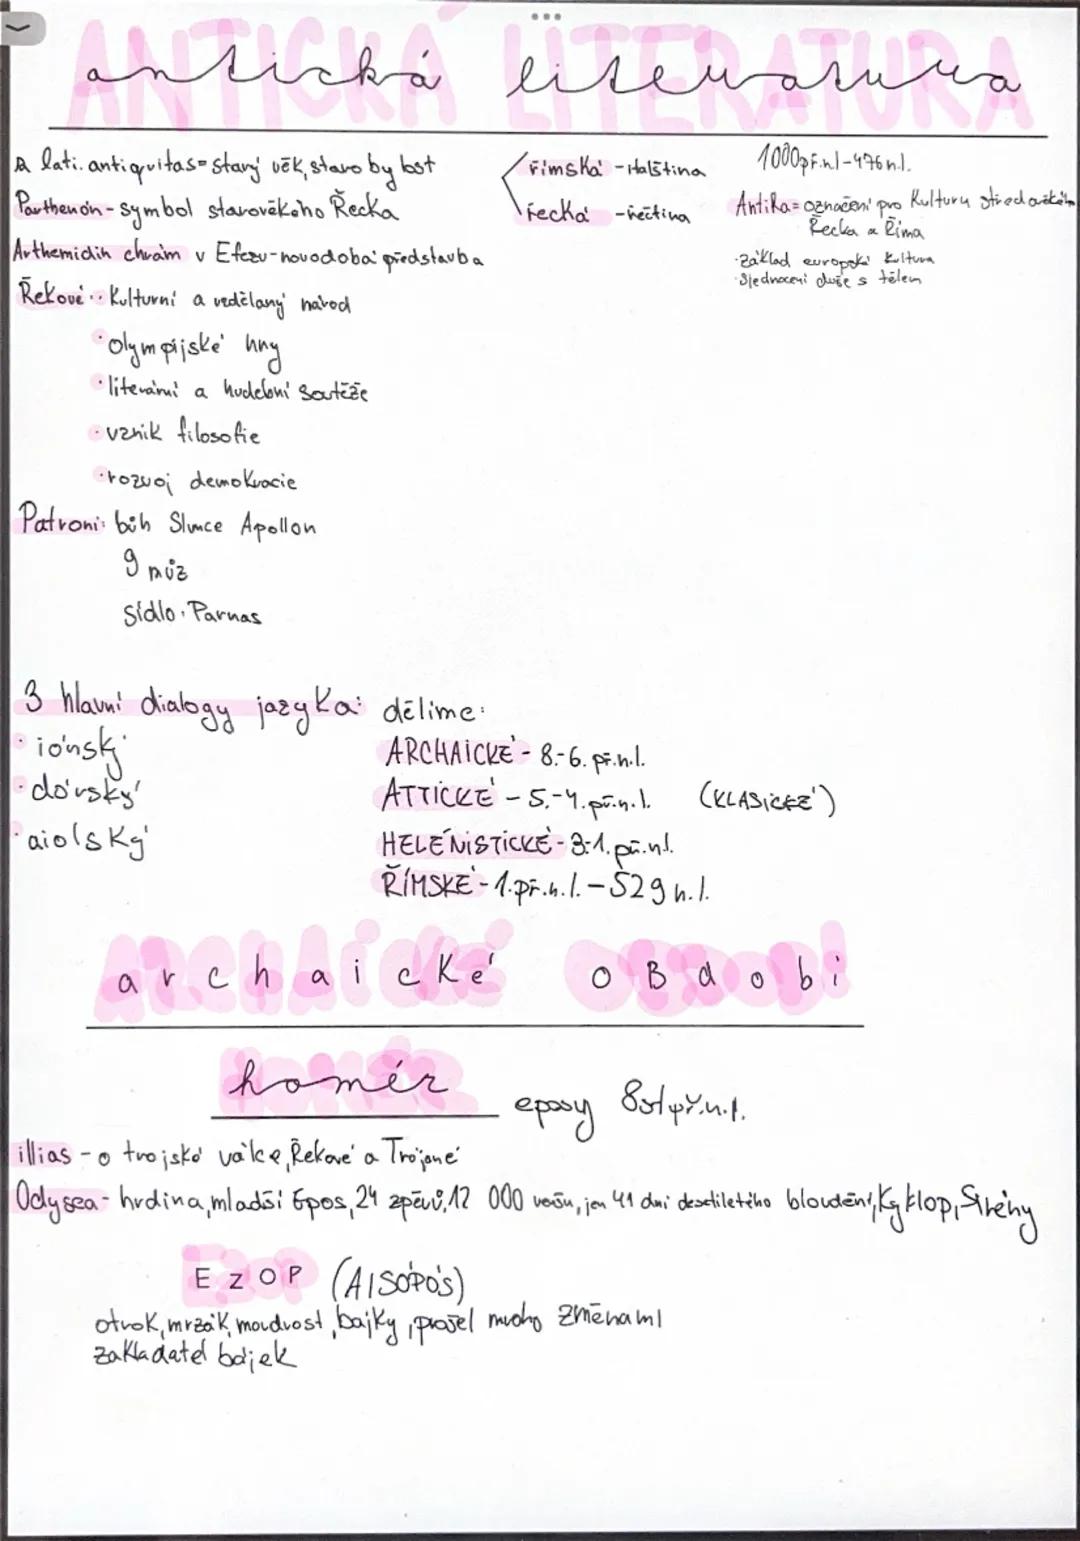 ANTICKÁ LITERATURA
antická literatura
z lati. antiquitas = starý věk, starobylost
římská - italština
řecká - řečtina
1000 př.n.l - 476 n.l.
Parthenón - symbol starověkého Řecka
Antika = označení pro kulturu
Řecka a Říma
Arthemidin chrám v Efezu - novodobá představba
• základ evropské kultura
• sjednocení duše s tělem
Řekové: • kulturní a vedělaný národ
• olympijské hry
• literární a hudební soutěže
• vznik filosofie
• rozvoj demokracie
Patroni: bůh Slunce Apollon
9 múz
sídlo: Parnas
3 hlavní dialogy jazyka:
• iónský
• dórský
• aiolský
dělíme:
ARCHAICKÉ - 8.-6. př.n.l.
ATTICKÉ - 5.-4. př.n.l. (KLASICKÉ)
HELÉNISTICKÉ - 3.-1. př.n.l.
ŘÍMSKÉ - 1. př.n.l. - 529 n.l.
archaické oBdobi
homér
eposy 8 st př.n.l.
illias - o trojské válce, Řekové a Trójané
Odysea - hrdina, mladší Epos, 24 zpěvů, 12 000 veršu, jen 41 dni desetiletého bloudění, Kyklop, Sirény
EZOP (AISÓPÓS)
otrok, mrzák, moudrost, bajky, prošel mnoho změnami
zakladatel bájek